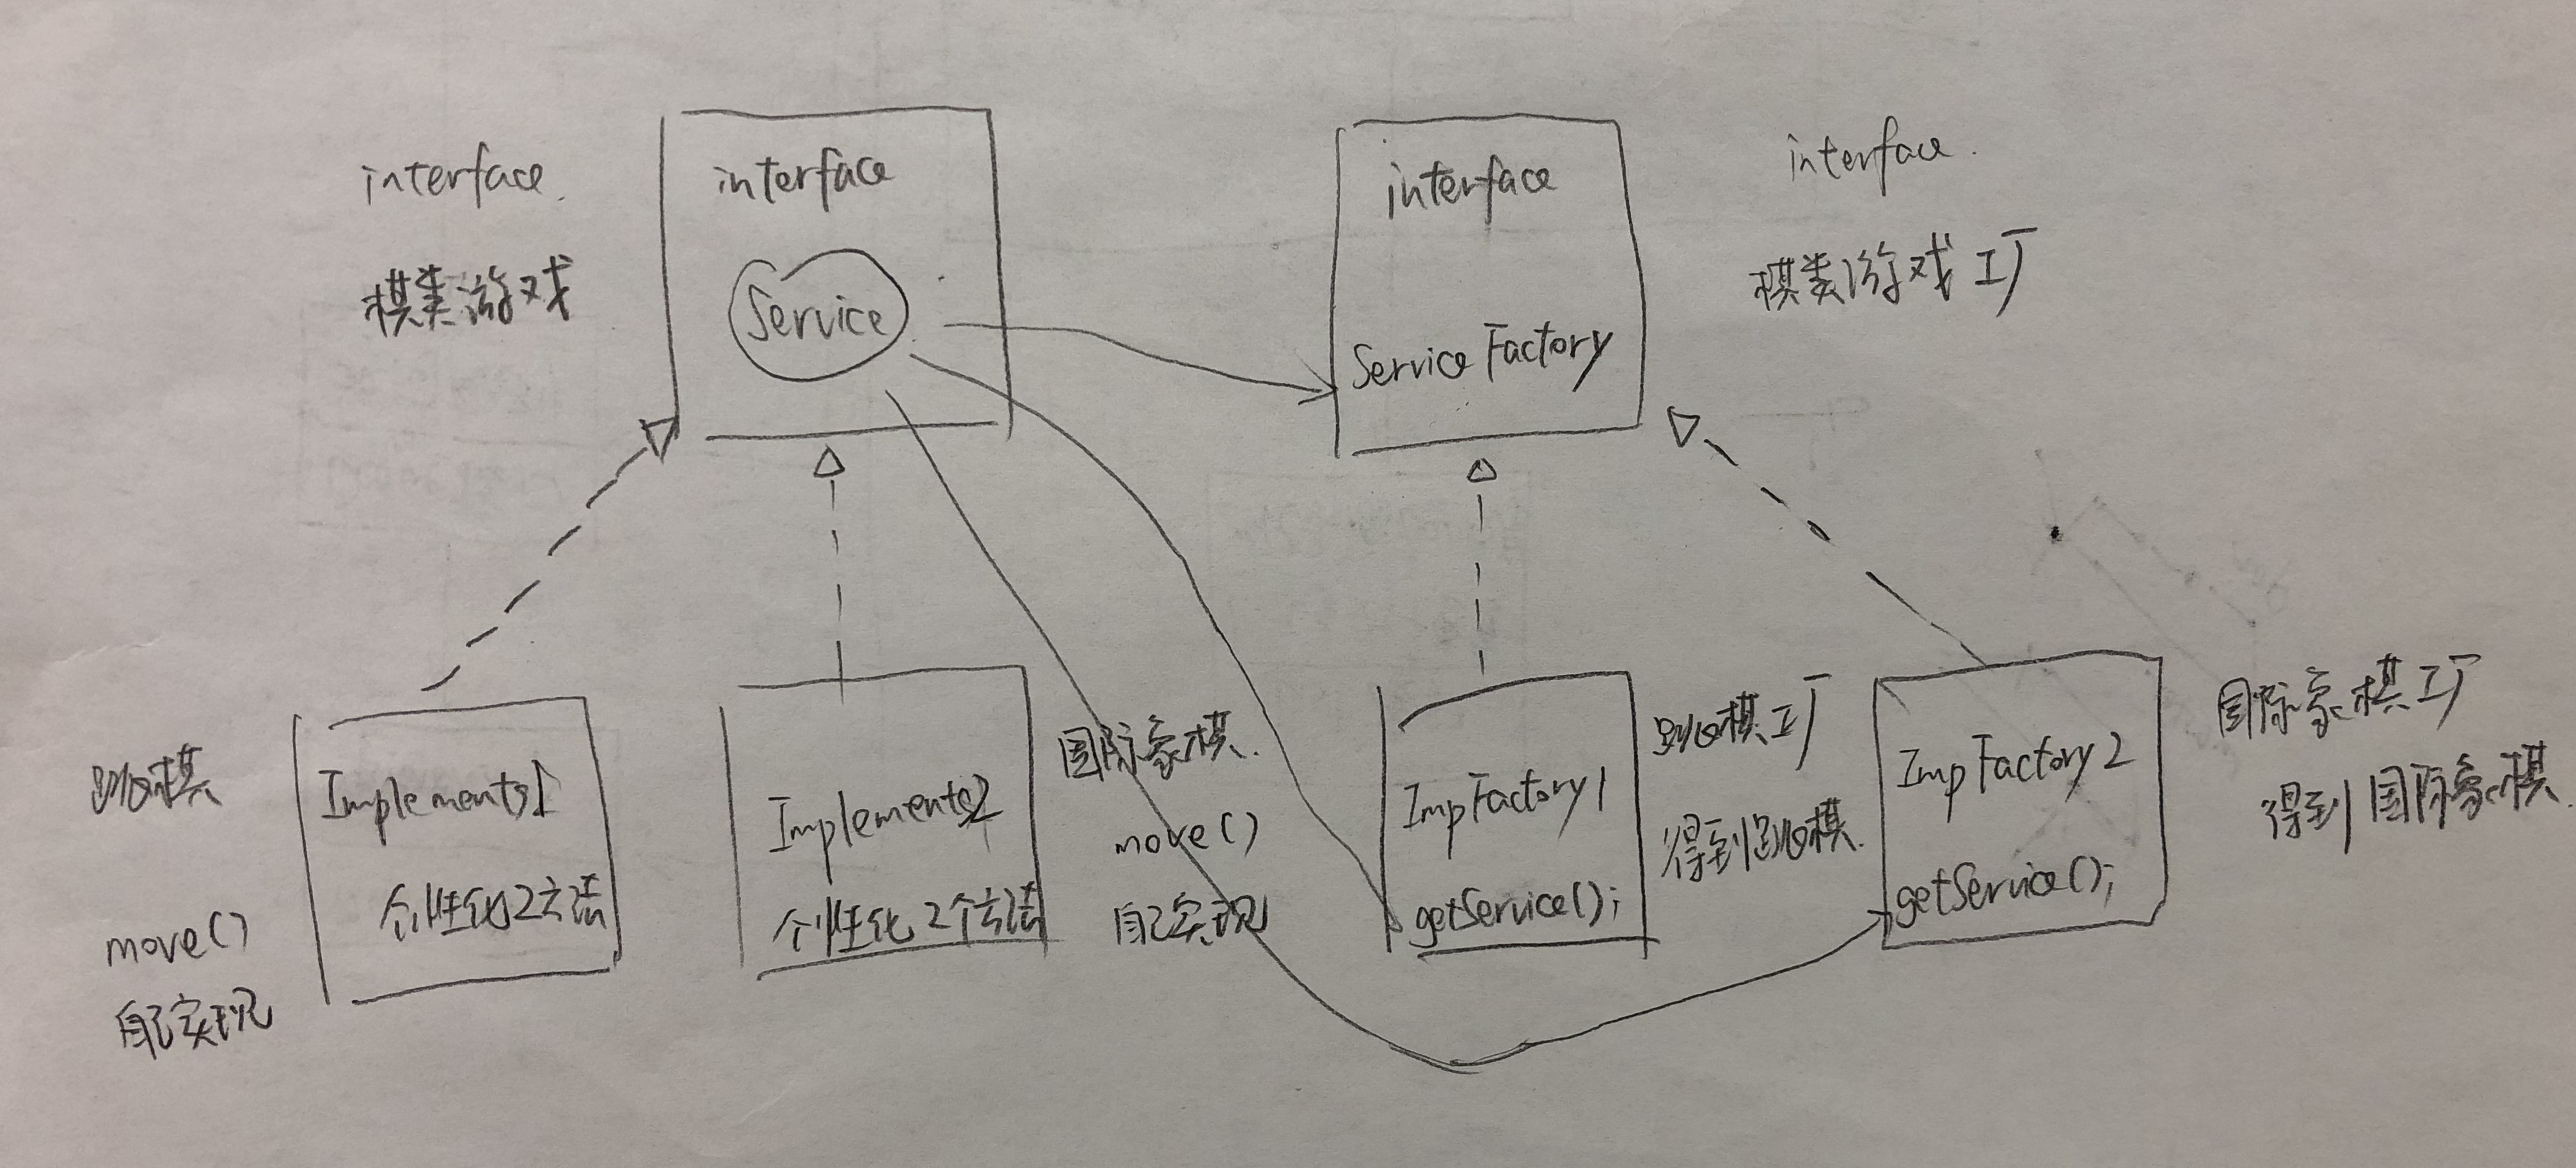 interface.
棋类游戏
interface
Service
interface
Service Factory
interface.
棋类游戏工厂
跳棋
move()
自己实现
Implements1
个性化2方法
Implements2
个性化2个方法
国际象棋.
move()
自己实现
ImpFactory1
getService();
跳棋工厂
得到跳棋.
ImpFactory2
getService();
国际象棋工厂
得到国际象棋.